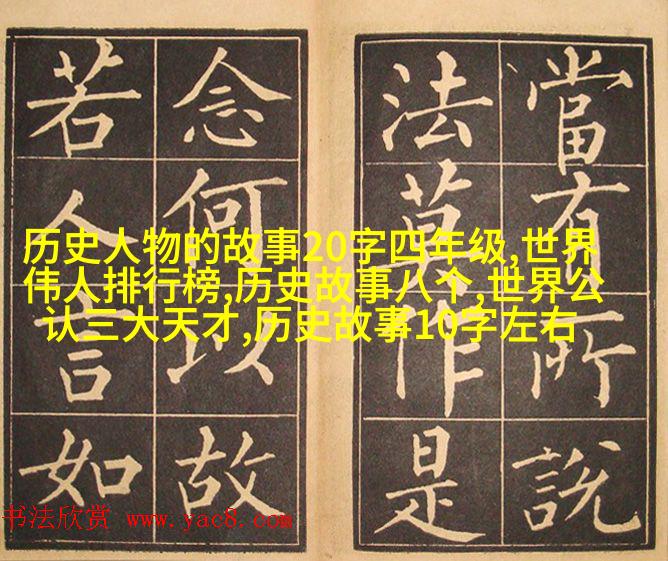 當有所說
法莫作是
念何以故
若人言如
历史人物的故事20字四年级,世界
伟人排行榜,历史故事八个,世界公
认三大天才,历史故事10字左右
书法欣赏 www.yac8.com